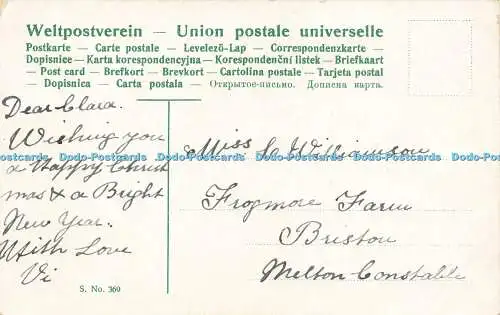 Weltpostverein — Union postale universelle
Postkarte — Carte postale — Levelező-Lap — Correspondenzkarte —
Dopisnice — Karta korespondencyjna — Korespondenční listek — Briefkaart
— Post card — Brefkort — Brevkort — Cartolina postale — Tarjeta postal
— Dopisnica — Carta postala — Открытое-письмо. Дописна карта.
Dear Clara.
Wishing you
a Happy Christ
mas & a Bright
New Year.
With Love
Vi
Miss Williamson
Frogmore Farm
Briston
Melton Constable
Dodo-Postcards Dodo-Postcards Dodo-Postcards Dodo-Postcards Dodo-Postcards
S. No. 369